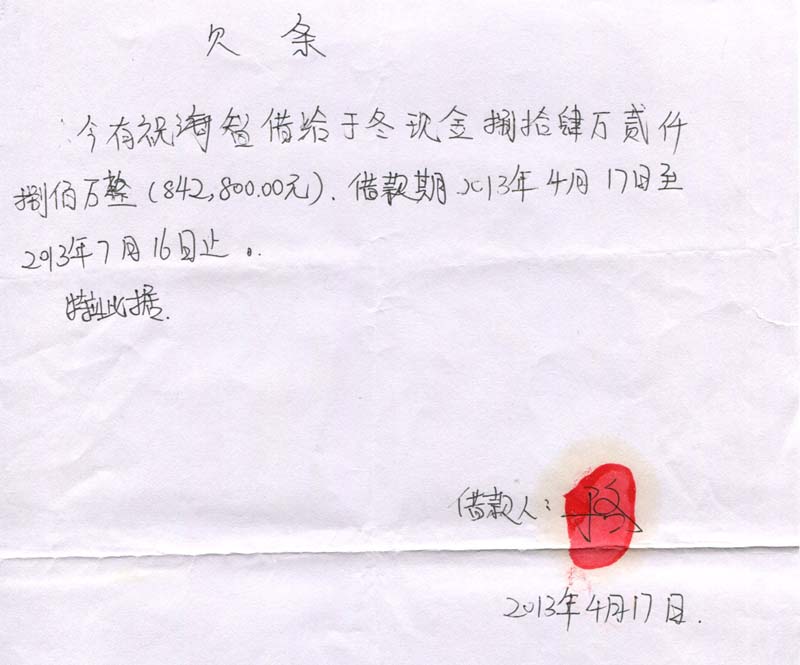 欠条
今有祝海智借给于冬现金捌拾肆万贰仟
捌佰万整(842,800.00元).借款期2013年4月17日至
2013年7月16日止。
特此据.
借款人:于冬
2013年4月17日.